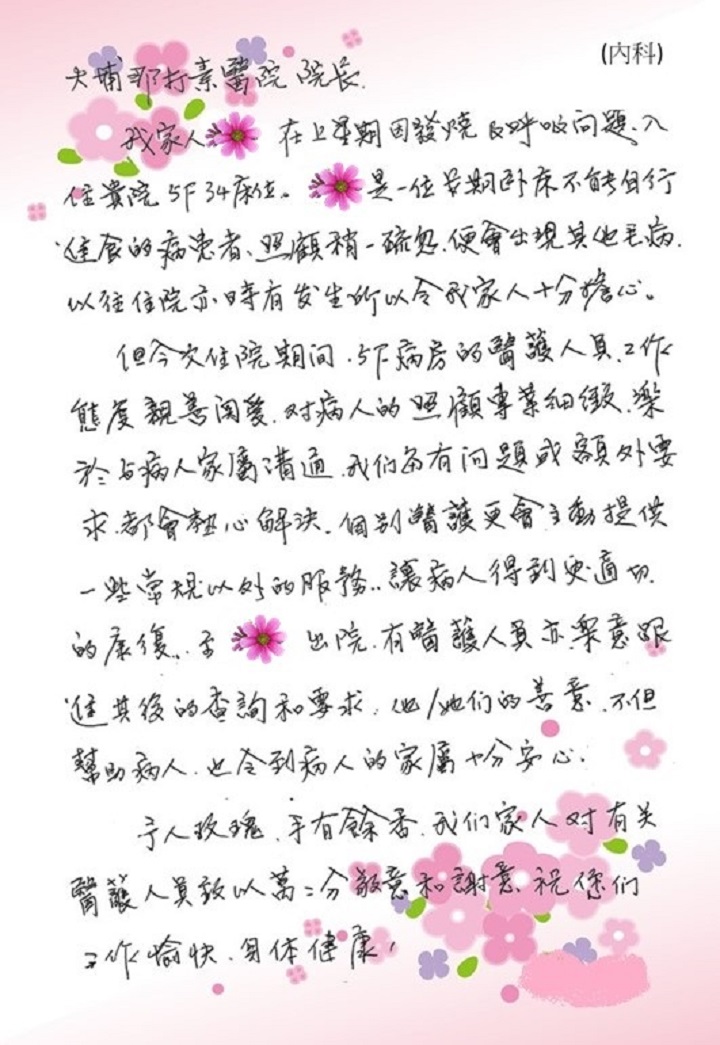 (內科)
大埔那打素醫院 院长.
我家人 在上星期因發燒及呼吸问題、入
住貴院5F 34床位。 是一位長期卧床不能自行
進食的病患者、照顧稍一疏忽、便會出現其他毛病.
以往住院亦時有发生所以令我家人十分擔心。
但今次住院期间、5F病房的醫護人員、工作
態度親善関愛、对病人的照顧專業細緻、樂
於与病人家屬溝通、我们每有问題或額外要
求、都會熱心解決。個别醫護更會主動提供
一些常規以外的服務、讓病人得到更適切
的康復、至 出院、有醫護人員亦樂意跟
進其後的查詢和要求、他/她们的善意、不但
幫助病人、也令到病人的家屬十分安心.
予人玫瑰、手有餘香、我们家人对有关
醫護人員致以萬二分敬意和謝意、祝您们
工作愉快、身体健康!